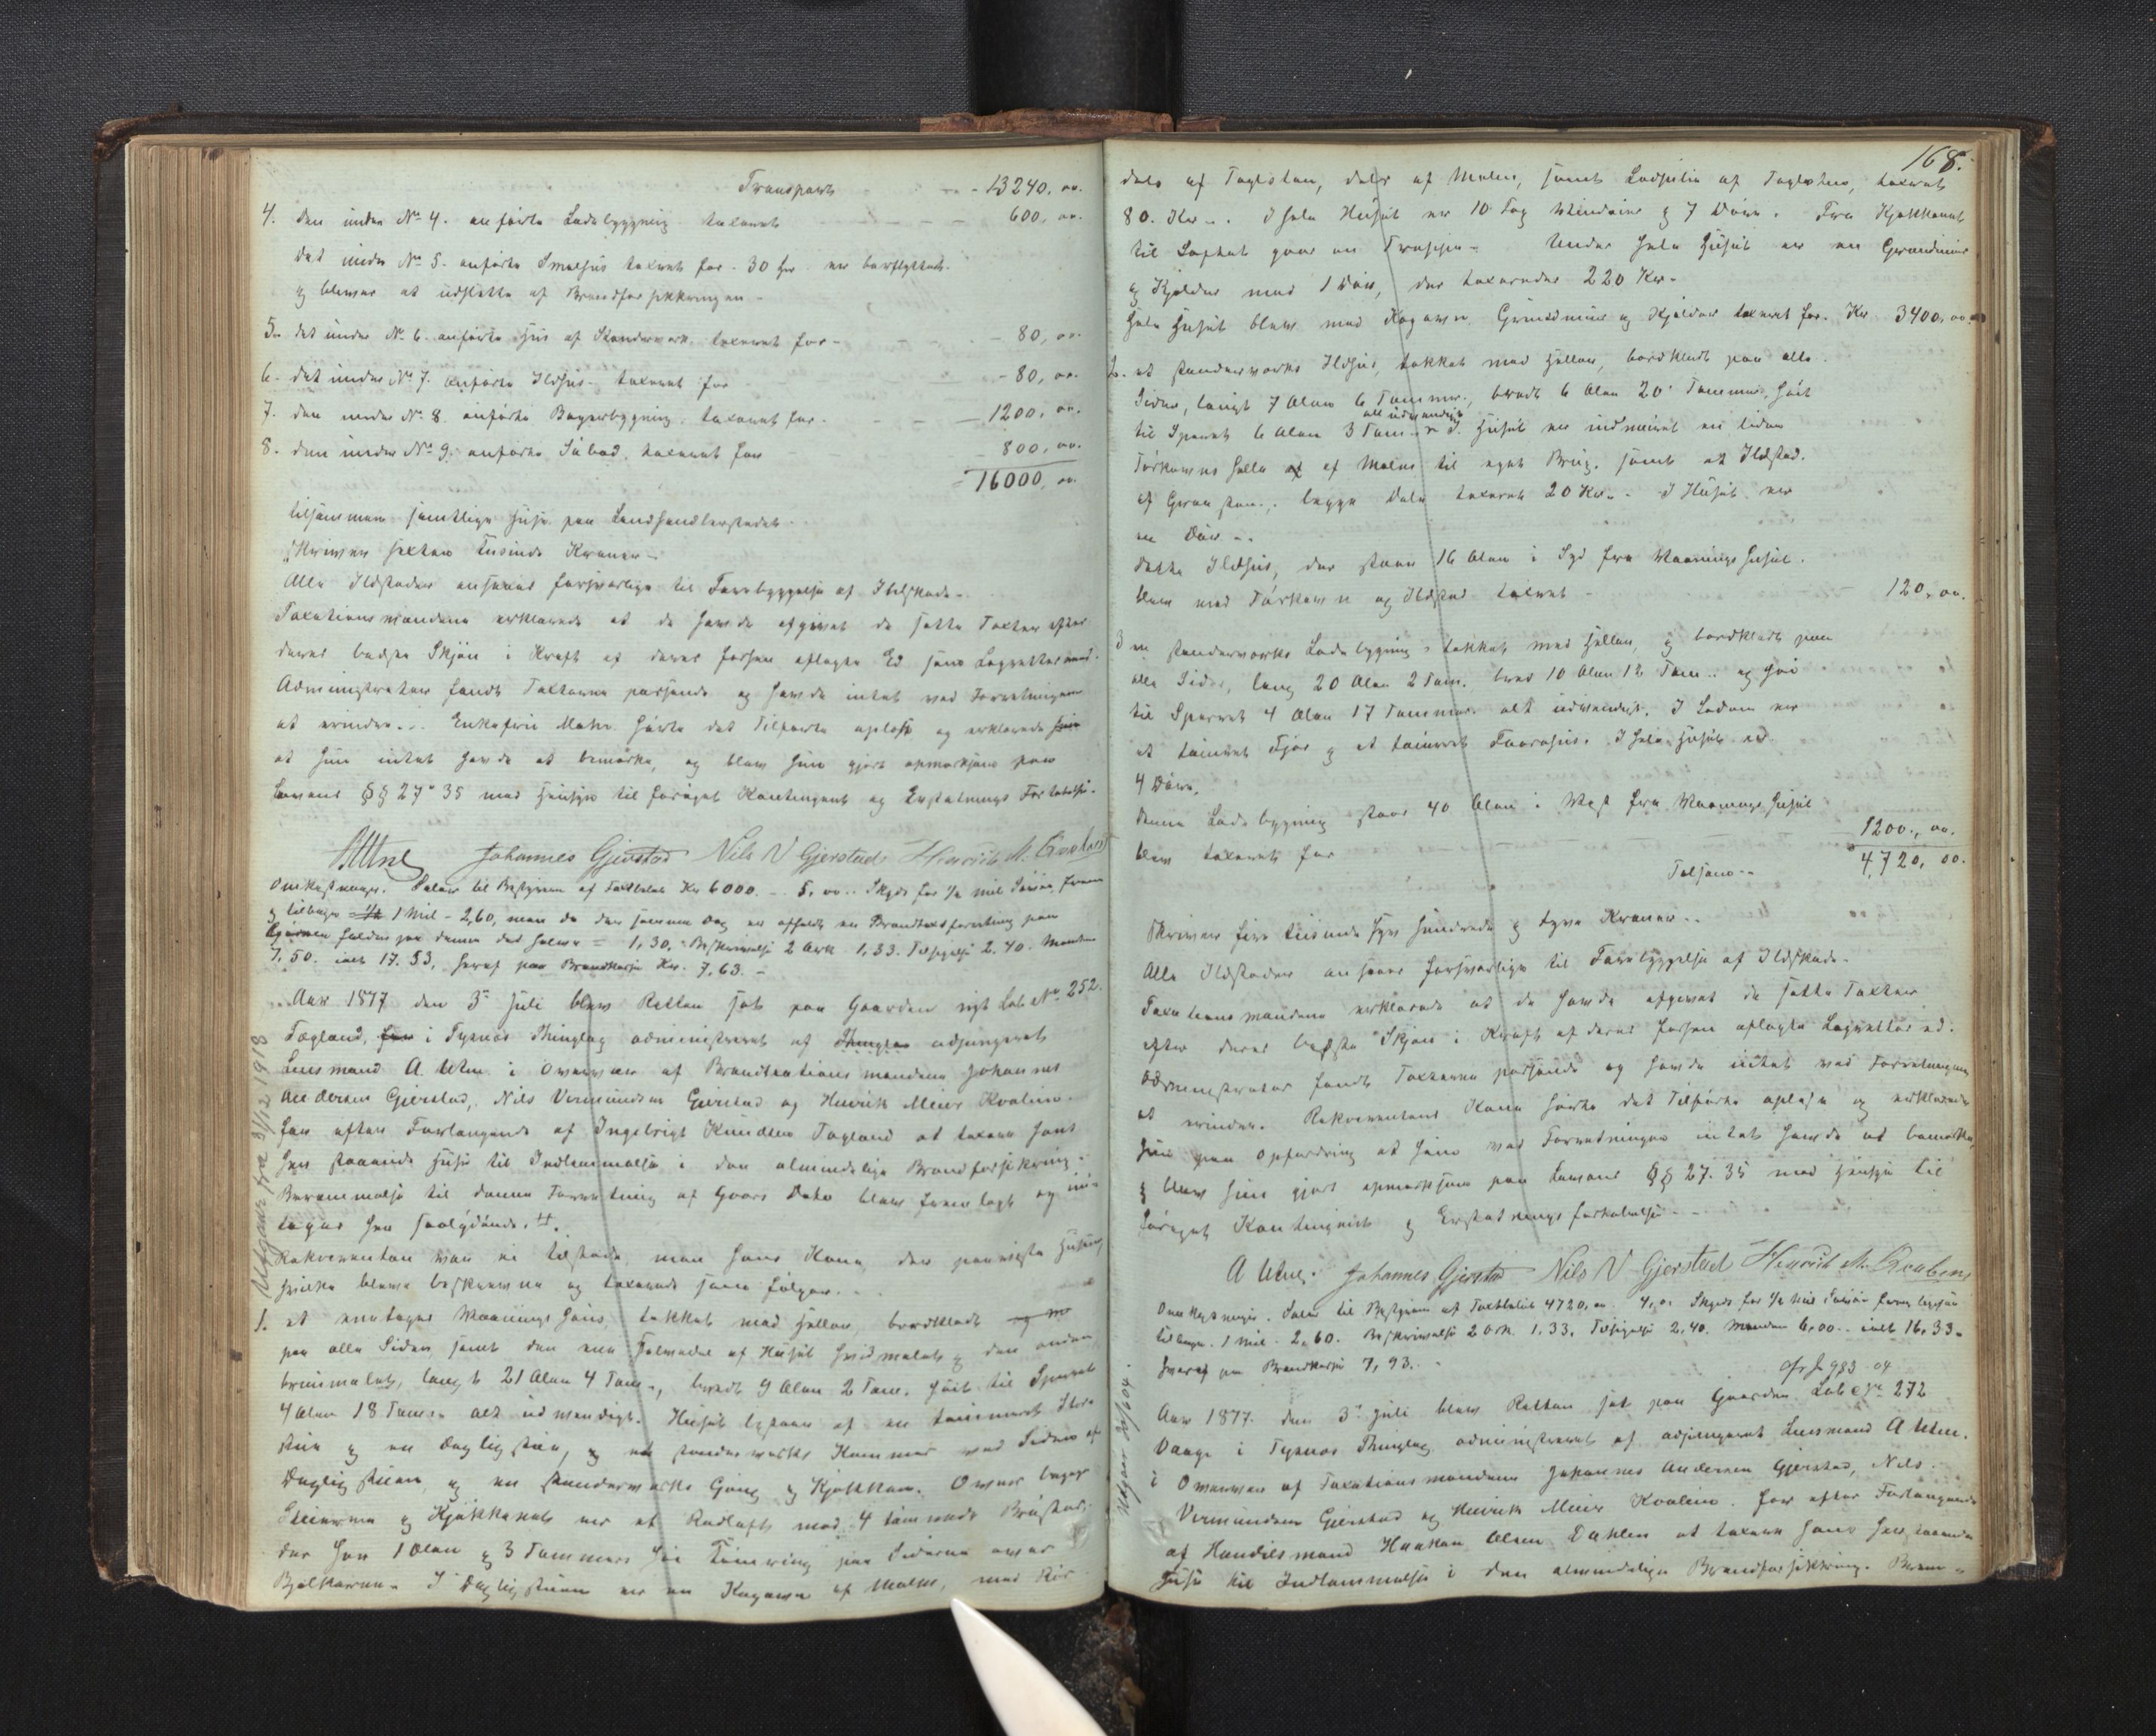 Transport - - 13240, oo.
4. den under No 4. anførte Ladebygning taxeret - - - 600, oo.
det under No 5. anførte Smalhus taxeret for 30 Kr er borflyttet
og blever at udslette af Brandforsikkringen -
5. det under No 6. anførte Hus af Standerværk taxeret for - - 80, oo.
6. det under No 7. anførte Ildhus taxeret for - 80, oo.
7. den under No 8. anførte Bagerbygning taxeret for - - - 1200, oo.
8. den under No 9. anførte Søbod, taxeret for 800, oo.
16000, oo.
tilsammen samtlige Huse paa Landhandlerstedet
skriver sexten tusinde Kroner -
Alle Ildsteder ansaaes forsvarlige til Forebyggelse af Ildskade.
Taxationsmændene erklærede at de havde afgivet de satte Taxter efter
deres bedste Skjøn i Kraft af deres forhen aflagte Ed som Lagrettesmænd.
Administrator fandt Taxterne passende og havde intet ved Forretningen
at erindre. Enkefru Mohn hørte det Tilførte oplæst og erklærede
at hun intet havde at bemærke, og blev hun gjort opmærksom paa
Lovens §§ 27 - 35 med Hensyn til forøget Kontingent og Erstatnings Fortabelse.
Johannes Gjerstad Nils N Gjerstad Henrich M.
Omkostninger. Salær til Bestyreren af Taxtbeløb Kr 6000. - 5, oo. Skyds for 1/2 Mil Søvei frem
og tilbage = 1 Mil - 2,60, men da der samme Dag er afholdt en Brandtaxtforretning paa
falder paa denne det halve = 1,30. Beskrivelse 2 Ark 1,33. Tilsigelse 2,40. Mændene
7,50. ialt 17.53, heraf paa Brandkasse Kr. 7,63. -
Aar 1877 den 3die Juli blev Retten sat paa Gaarden nyt Løbe No 252.
Tægland, i Tysnæs Thinglag administreret af adjungeret
Lensmand A. Utne i Overvær af Brandtaxtionsmændene Johannes
Andersen Gjerstad, Nils Vermundsen Gjerstad og Henrik Meier
for efter Forlangende af Ingebrigt Knudsen Tægland at taxere hans
her staaende Huse til Indlemmelse i den almindelige Brandforsikring.
Berammelse til denne Forretning af Gaars Dato blev fremlagt og ind-
tages her saalydende. #.
Rekvirenten var ei tilstede, men hans Kone, der paaviste Husene
hvilke bleve beskrevne og taxerede som følger.
1. et enetages Vaaningshus, tækket med Heller, bordklædt
paa alle Sider, samt den ene Halvdel af Huset hvidmalet og den anden
brunmalet, langt 21 Alen 4 Tom., bredt 9 Alen 2 Tom. høit til Sperret
4 Alen 18 Tom. alt udvendigt. Huset bestaar af en tømmeret Stor-
stue og en Dagligstue, og et standerværks Kammer ved Siden af
Dagligstuen, og en standerværks Gang og Kjøkken. Over begge
Stuerne og Kjøkkenet er et Rødloft med 4 tømrede Brøster
der har 1 Alen og 3 Tommers høi Tømring paa Siderne over
Bjelkerne. I Dagligstuen er en Kogeovn af Malm, med Rør
Utgaar fra 31/12 1918
168.
dels af Taglsten, dels af Malm, samt Ladpibe af Taglsten, taxeret
80. Kr. I hele Huset er 10 Fag Vinduer og 7 Døre. Fra Kjøkkenet
til Loftet gaar en Trappe. Under hele Huset er en Grundmuur
og Kjelder med 1 Dør, der taxeredes 220 Kr.
Hele Huset blev med Kogeovn Grundmuur og Kjelder taxeret for Kr 3400, oo.
2. et standerværks Ildhus, tækket med Heller, bordklædt paa alle
Sider, langt 7 Alen 6 Tommer, bredt 6 Alen 20 Tommer, høit
til Sperret 6 Alen 3 Tom. alt udvendigt I Huset er indmuret en liden
Tørkeovns Helle af Malm til eget Brug, samt et Ildsted
af Graasten, begge Dele taxeret 20 Kr. I Huset er
en Dør.
dette Ildhus, der staar 16 Alen i Syd fra Vaaningshuset
blev med Tørkeovn og Ildsted taxeret - 120, oo.
3 en standerværks Ladebygning tækket med Heller, og bordklædt paa
alle Sider, lang 20 Alen 2 Tom. bred 10 Alen 12 Tom. og høi
til Sperret 4 Alen 17 Tommer alt udvendigt. I Laden er
et tømret Fjøs og et tømret Faarehus. I hele Huset er
4 Døre.
denne Ladebygning staar 40 Alen i Vest fra Vaaningshuset
blev taxeret for 1200, oo.
Tilsam. 4,720, oo.
skriver fire tusinde syv hundrede og tyve Kroner.
Alle Ildsteder ansaaes forsvarlige til Forebyggelse af Ildskade.
Taxationsmændene erklærede at de havde afgivet de satte Taxter
efter deres bedste Skjøn i Kraft af deres forhen aflagte Lagretteed.
Administrator fandt Taxterne passende og havde intet ved Forretningen
at erindre. Rekvirentens Kone hørte det Tilførte oplæse og erklærede
hun paa Opfordring at hun ved Forretningen intet havde at bemærke,
og blev hun gjort opmærksom paa Lovens §§ 27. 35 med Hensyn til
forøget Kontingent og Erstatnings fortabelse.
A Utne. Johannes Gjerstad Nils N Gjerstad Henrich M.
Omkostninger. Salær til Bestyreren af Taxtbeløb 4720, oo 4, o. Skyds for 1/2 Mil Søvei frem ligesaa
tilbage. 1 Mil - 2,60. Beskrivelse 2 Ark 1,33. Tilsigelse 2,40. Mændene 6,00. ialt 16,33.
hvoraf paa Brandkasse 7,93.
983 04
Aar 1877. den 3die Juli blev Retten sat paa Gaarden Løbe No 272
Vaage i Tysnæs Thinglag administreret af adjungeret Lensmand A Utne.
i Overvær af Taxationsmændene Johannes Andersen Gjerstad, Nils
Vermundsen Gjerstad og Henrik Meier for efter Forlangende
af Handelsmand Haakon Olsen Dahlen at taxere hans her staaende
Huse til Indlemmelse i den almindelige Brandforsikkring. Beram-